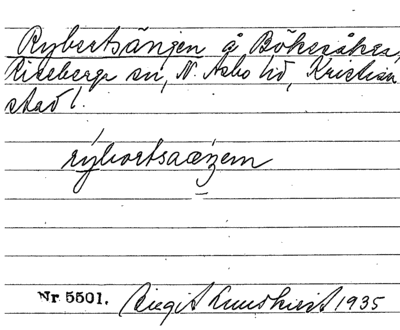 Rybertsängen å Bökesåker,
Riseberga sn, N. Åsbo hd, Kristian
stad l.
rýbortsaæŋem
Nr 5501. Birgit Lundkvist 1935